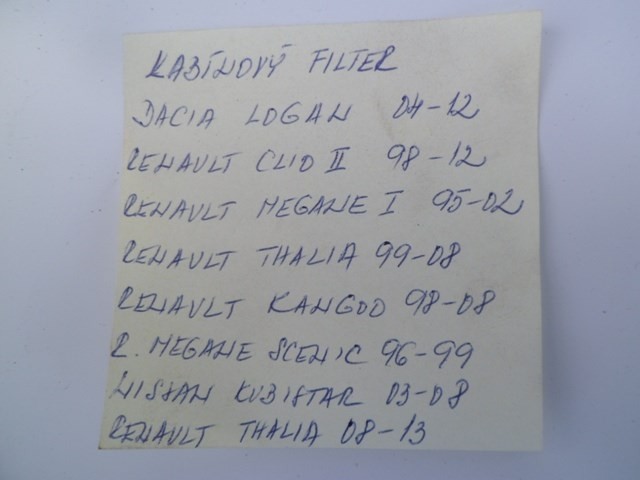 KABÍNOVÝ FILTER
DACIA LOGAN 04-12
RENAULT CLIO II 98-12
RENAULT MEGANE I 95-02
RENAULT THALIA 99-08
RENAULT KANGOO 98-08
R. MEGANE SCENIC 96-99
NISSAN KUBISTAR 03-08
RENAULT THALIA 08-13